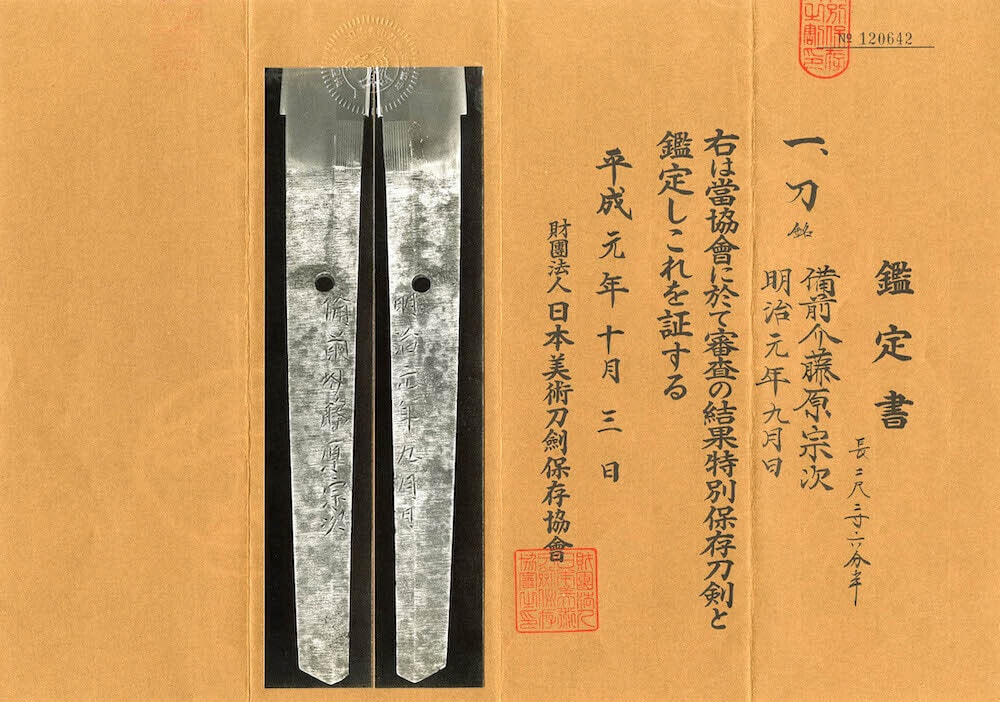 № 120642
鑑定書
一、刀 銘 備前介藤原宗次
明治元年九月日
長二尺三寸六分半
右は當協會に於て審査の結果特別保存刀剣と
鑑定しこれを証する
平成元年十月三日
財團法人日本美術刀劍保存協會
備前介藤原宗次
明治二年九月日